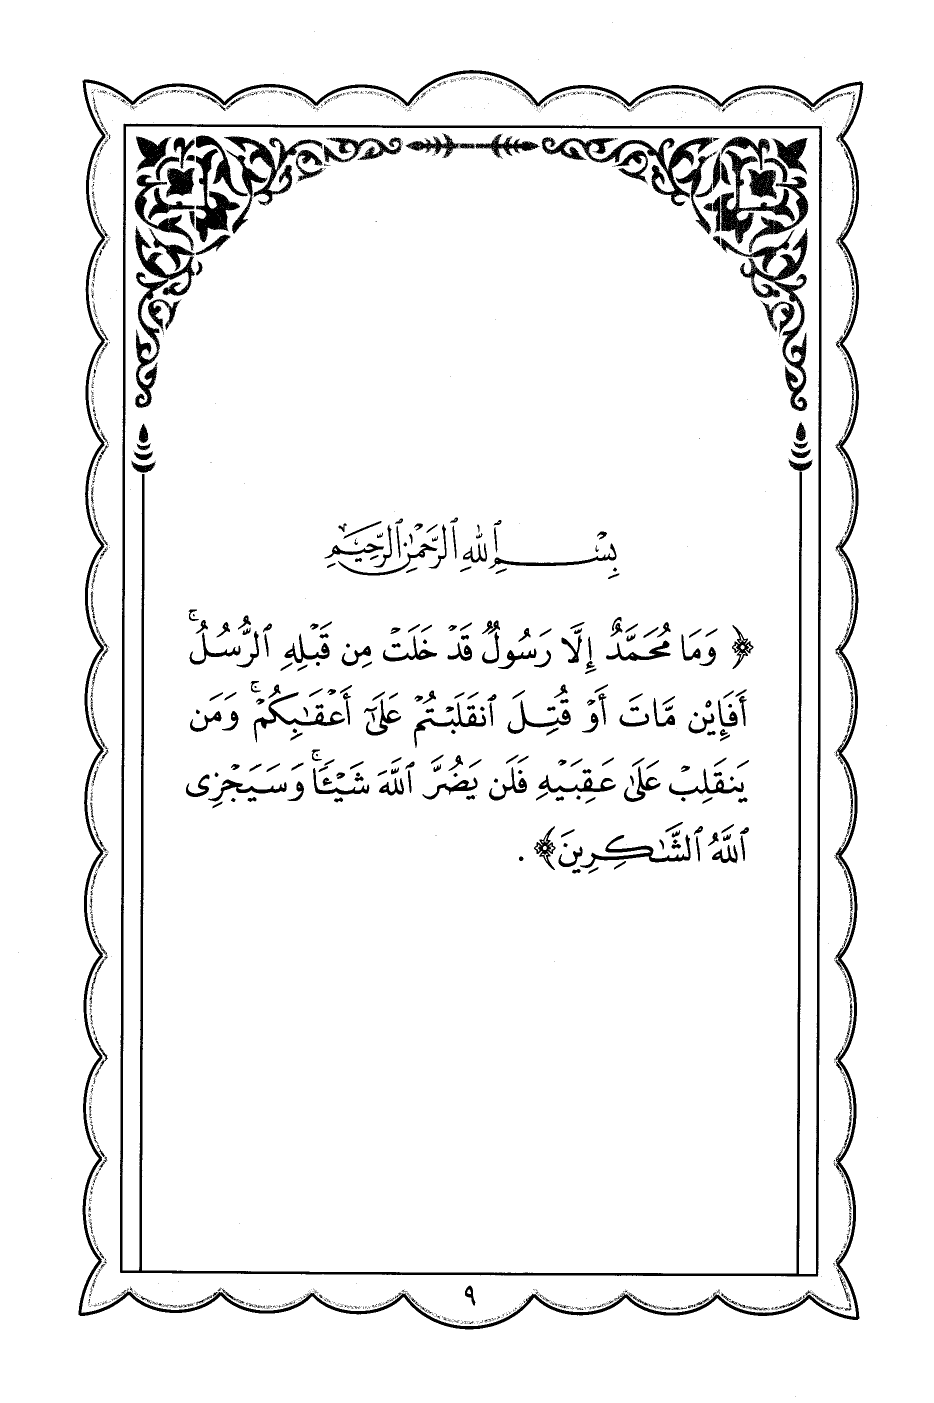 بِسْمِ ٱللَّهِ ٱلرَّحْمَٰنِ ٱلرَّحِيمِ
﴿ وَمَا مُحَمَّدٌ إِلَّا رَسُولٌ قَدْ خَلَتْ مِن قَبْلِهِ ٱلرُّسُلُ ۚ
أَفَإِيْن مَّاتَ أَوْ قُتِلَ ٱنقَلَبْتُمْ عَلَىٰٓ أَعْقَٰبِكُمْ ۚ وَمَن
يَنقَلِبْ عَلَىٰ عَقِبَيْهِ فَلَن يَضُرَّ ٱللَّهَ شَيْـًٔا ۚ وَسَيَجْزِى
ٱللَّهُ ٱلشَّٰكِرِينَ ﴾ .
٩